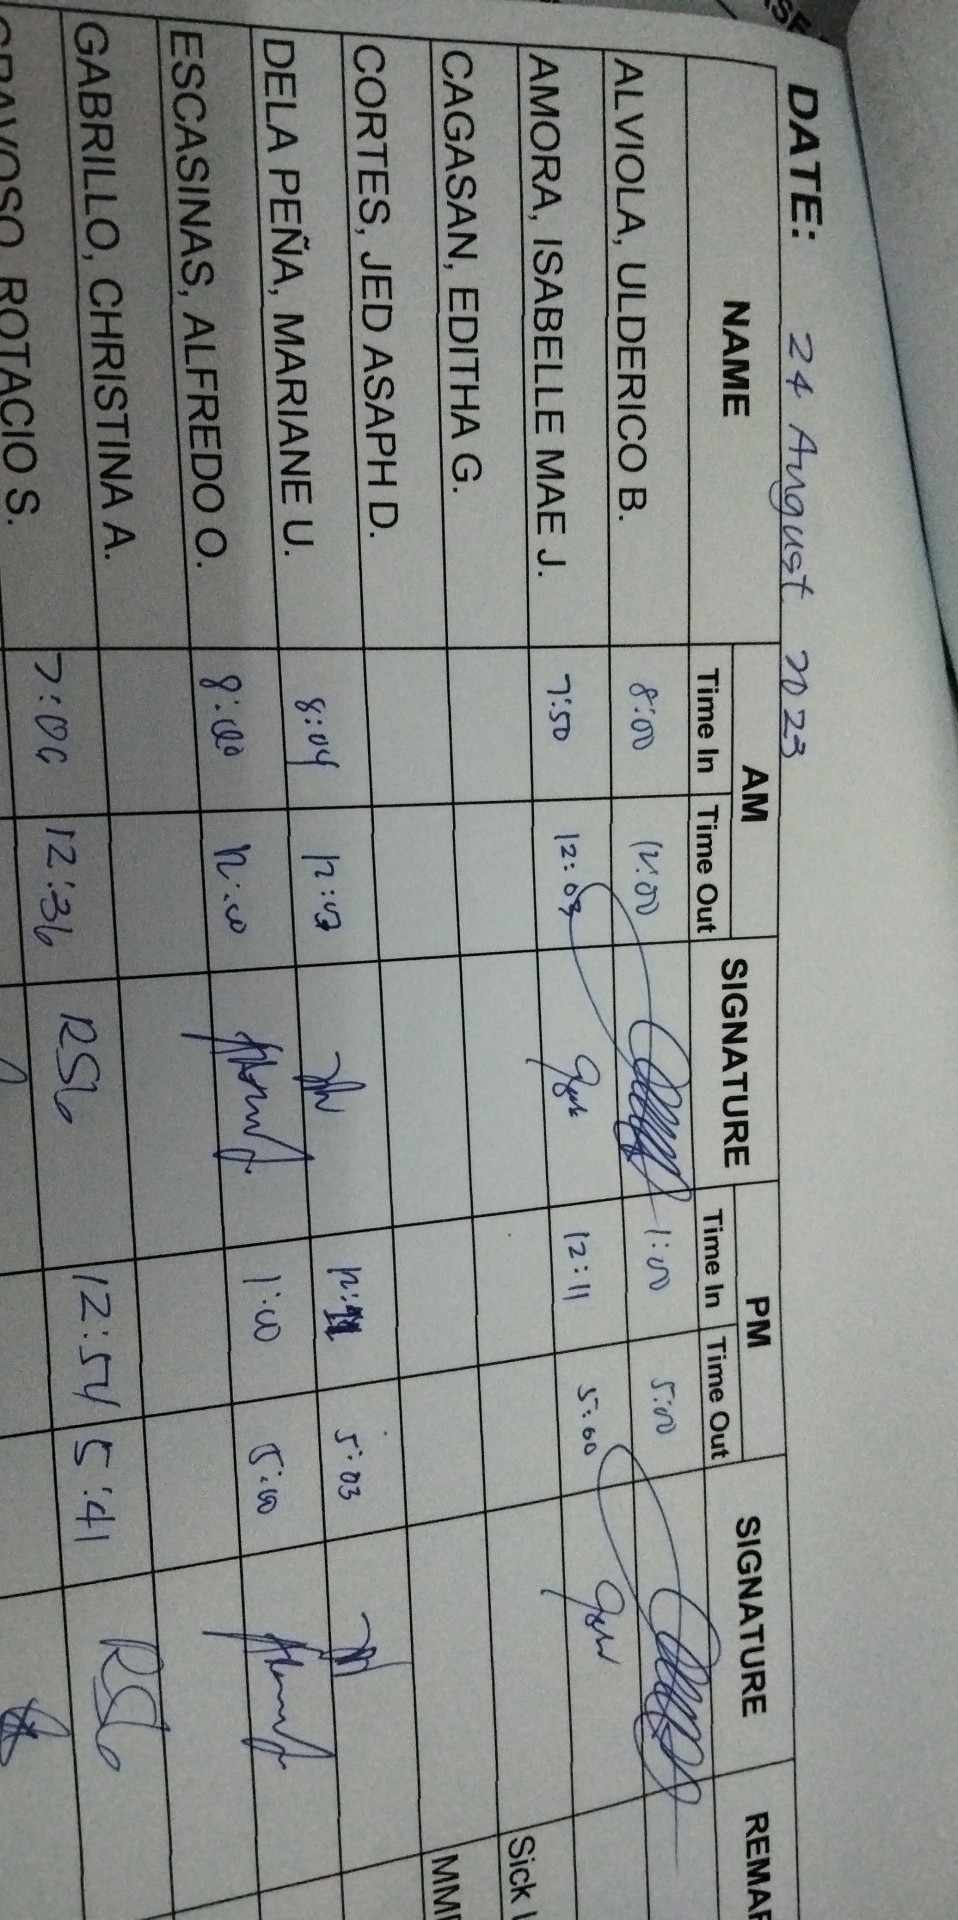 DATE: 24 August 2023
NAME AM SIGNATURE PM SIGNATURE
Time In Time Out Time In Time Out
ALVIOLA, ULDERICO B. 8:00 12:00 1:00 5:00
AMORA, ISABELLE MAE J. 7:50 12:03 12:11 5:00
CAGASAN, EDITHA G. Sick
CORTES, JED ASAPH D.
DELA PEÑA, MARIANE U. 8:04 12:07 5:03
ESCASINAS, ALFREDO O. 8:00 12:00 1:00 5:00
GABRILLO, CHRISTINA A.
GRAVOSO, ROTACIO S. 7:06 12:36 RSG 12:54 5:41 RSG